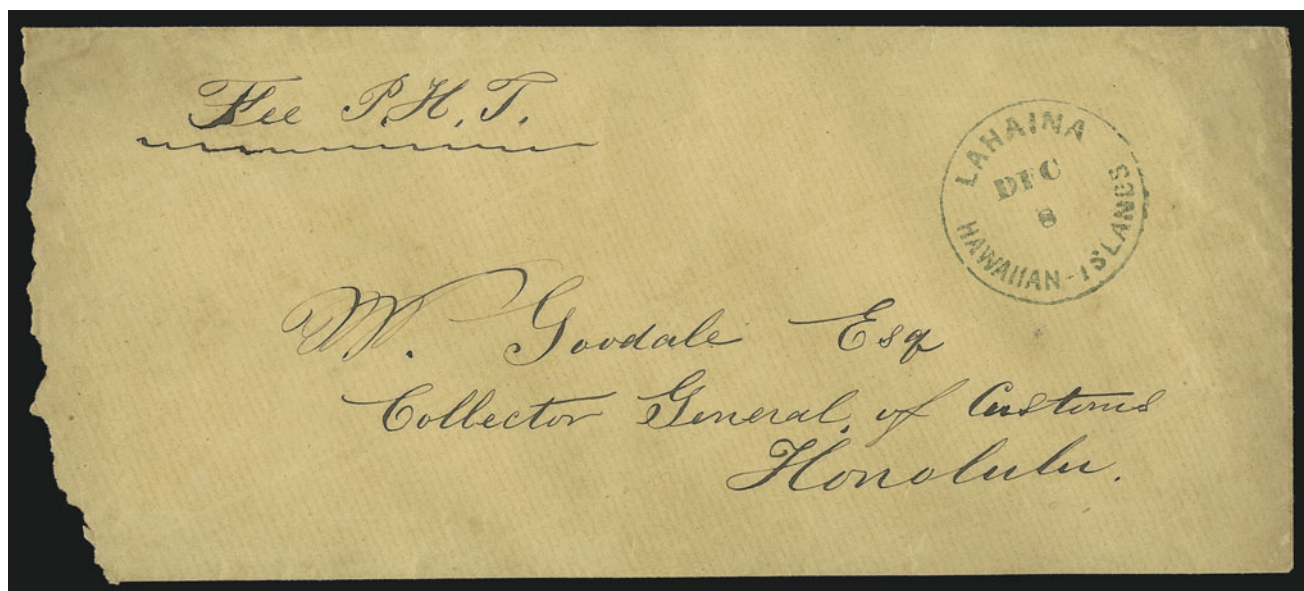 Free P.H.T.
LAHAINA
DEC
8
HAWAIIAN-ISLANDS
W. Goodale Esq
Collector General, of Customs
Honolulu.